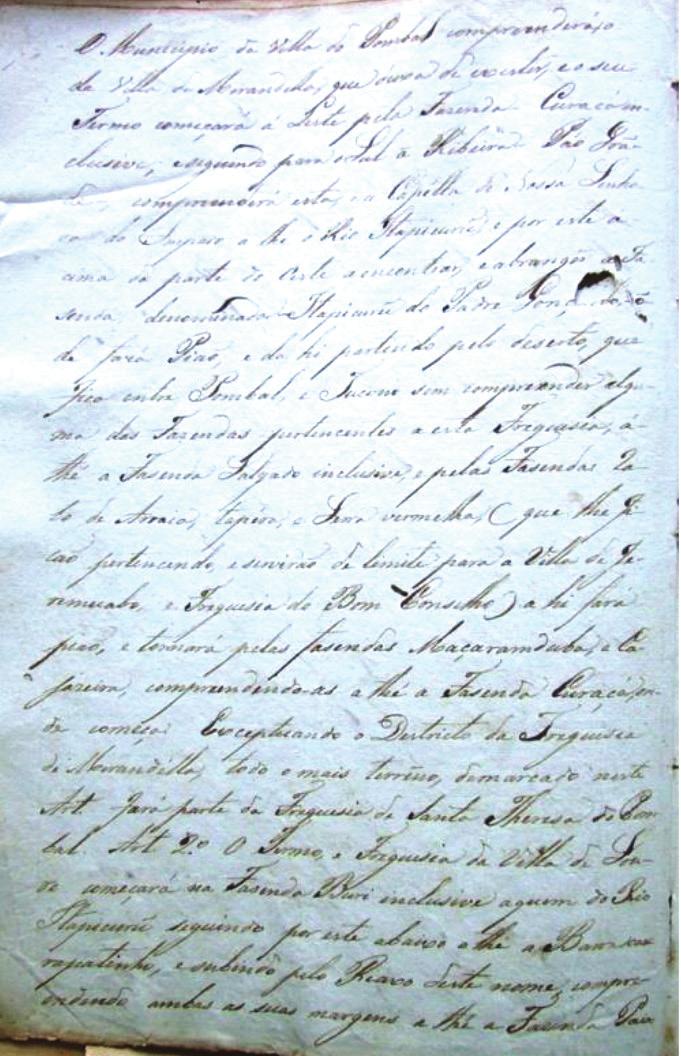 O Municipio da Villa do Pombal comprenderá, o
da Villa de Mirandella, que deixa de existir, e o seu
Termo começará á Leste pela Fazenda Curaçá in-
clusive, e seguindo para o Sul a Ribeira Páo Gran-
de, comprenderá esta, e a Capella de Nossa Senho-
ra do Amparo athe o Rio Itapicurú, e por este a-
cima da parte do Oeste a encontrar, e abranger a Fa
senda denominada Itapicurú do Padre
de fará Piaõ, e da hi partindo pelo deserto, que
fica entre Pombal, e Tucano sem comprender algu-
ma das Fazendas pertencentes a esta Freguesia, a-
thé a Fasenda Salgado inclusive, e pelas Fasendas Ra-
so de Arraia, tapera, e Serra vermelha, (que lhe fi
caõ pertencendo, e servirão de limite para a Villa de Je-
remuabo, e Freguesia do Bom Conselho) a hi fará
piaõ, e tornará pelas fasendas Maçaramduba, e Ca-
jazeira, comprendendo-as a thé a Fasenda Curaçá, on-
de começa. Exceptuando o Districto da Freguesia
de Mirandella, todo o mais terreno, demarcado neste
Art. fará parte da Freguesia de Santa Theresa do Pom
bal. Art 2.º O Termo, e Freguesia da Villa de Sou-
re começará na Fasenda Buri inclusive aquem do Rio
Itapicurú seguindo por este abaixo athé a Barra
e subindo pelo Riaxo deste nome, compre-
endendo ambas as suas margens a thé a Fazenda